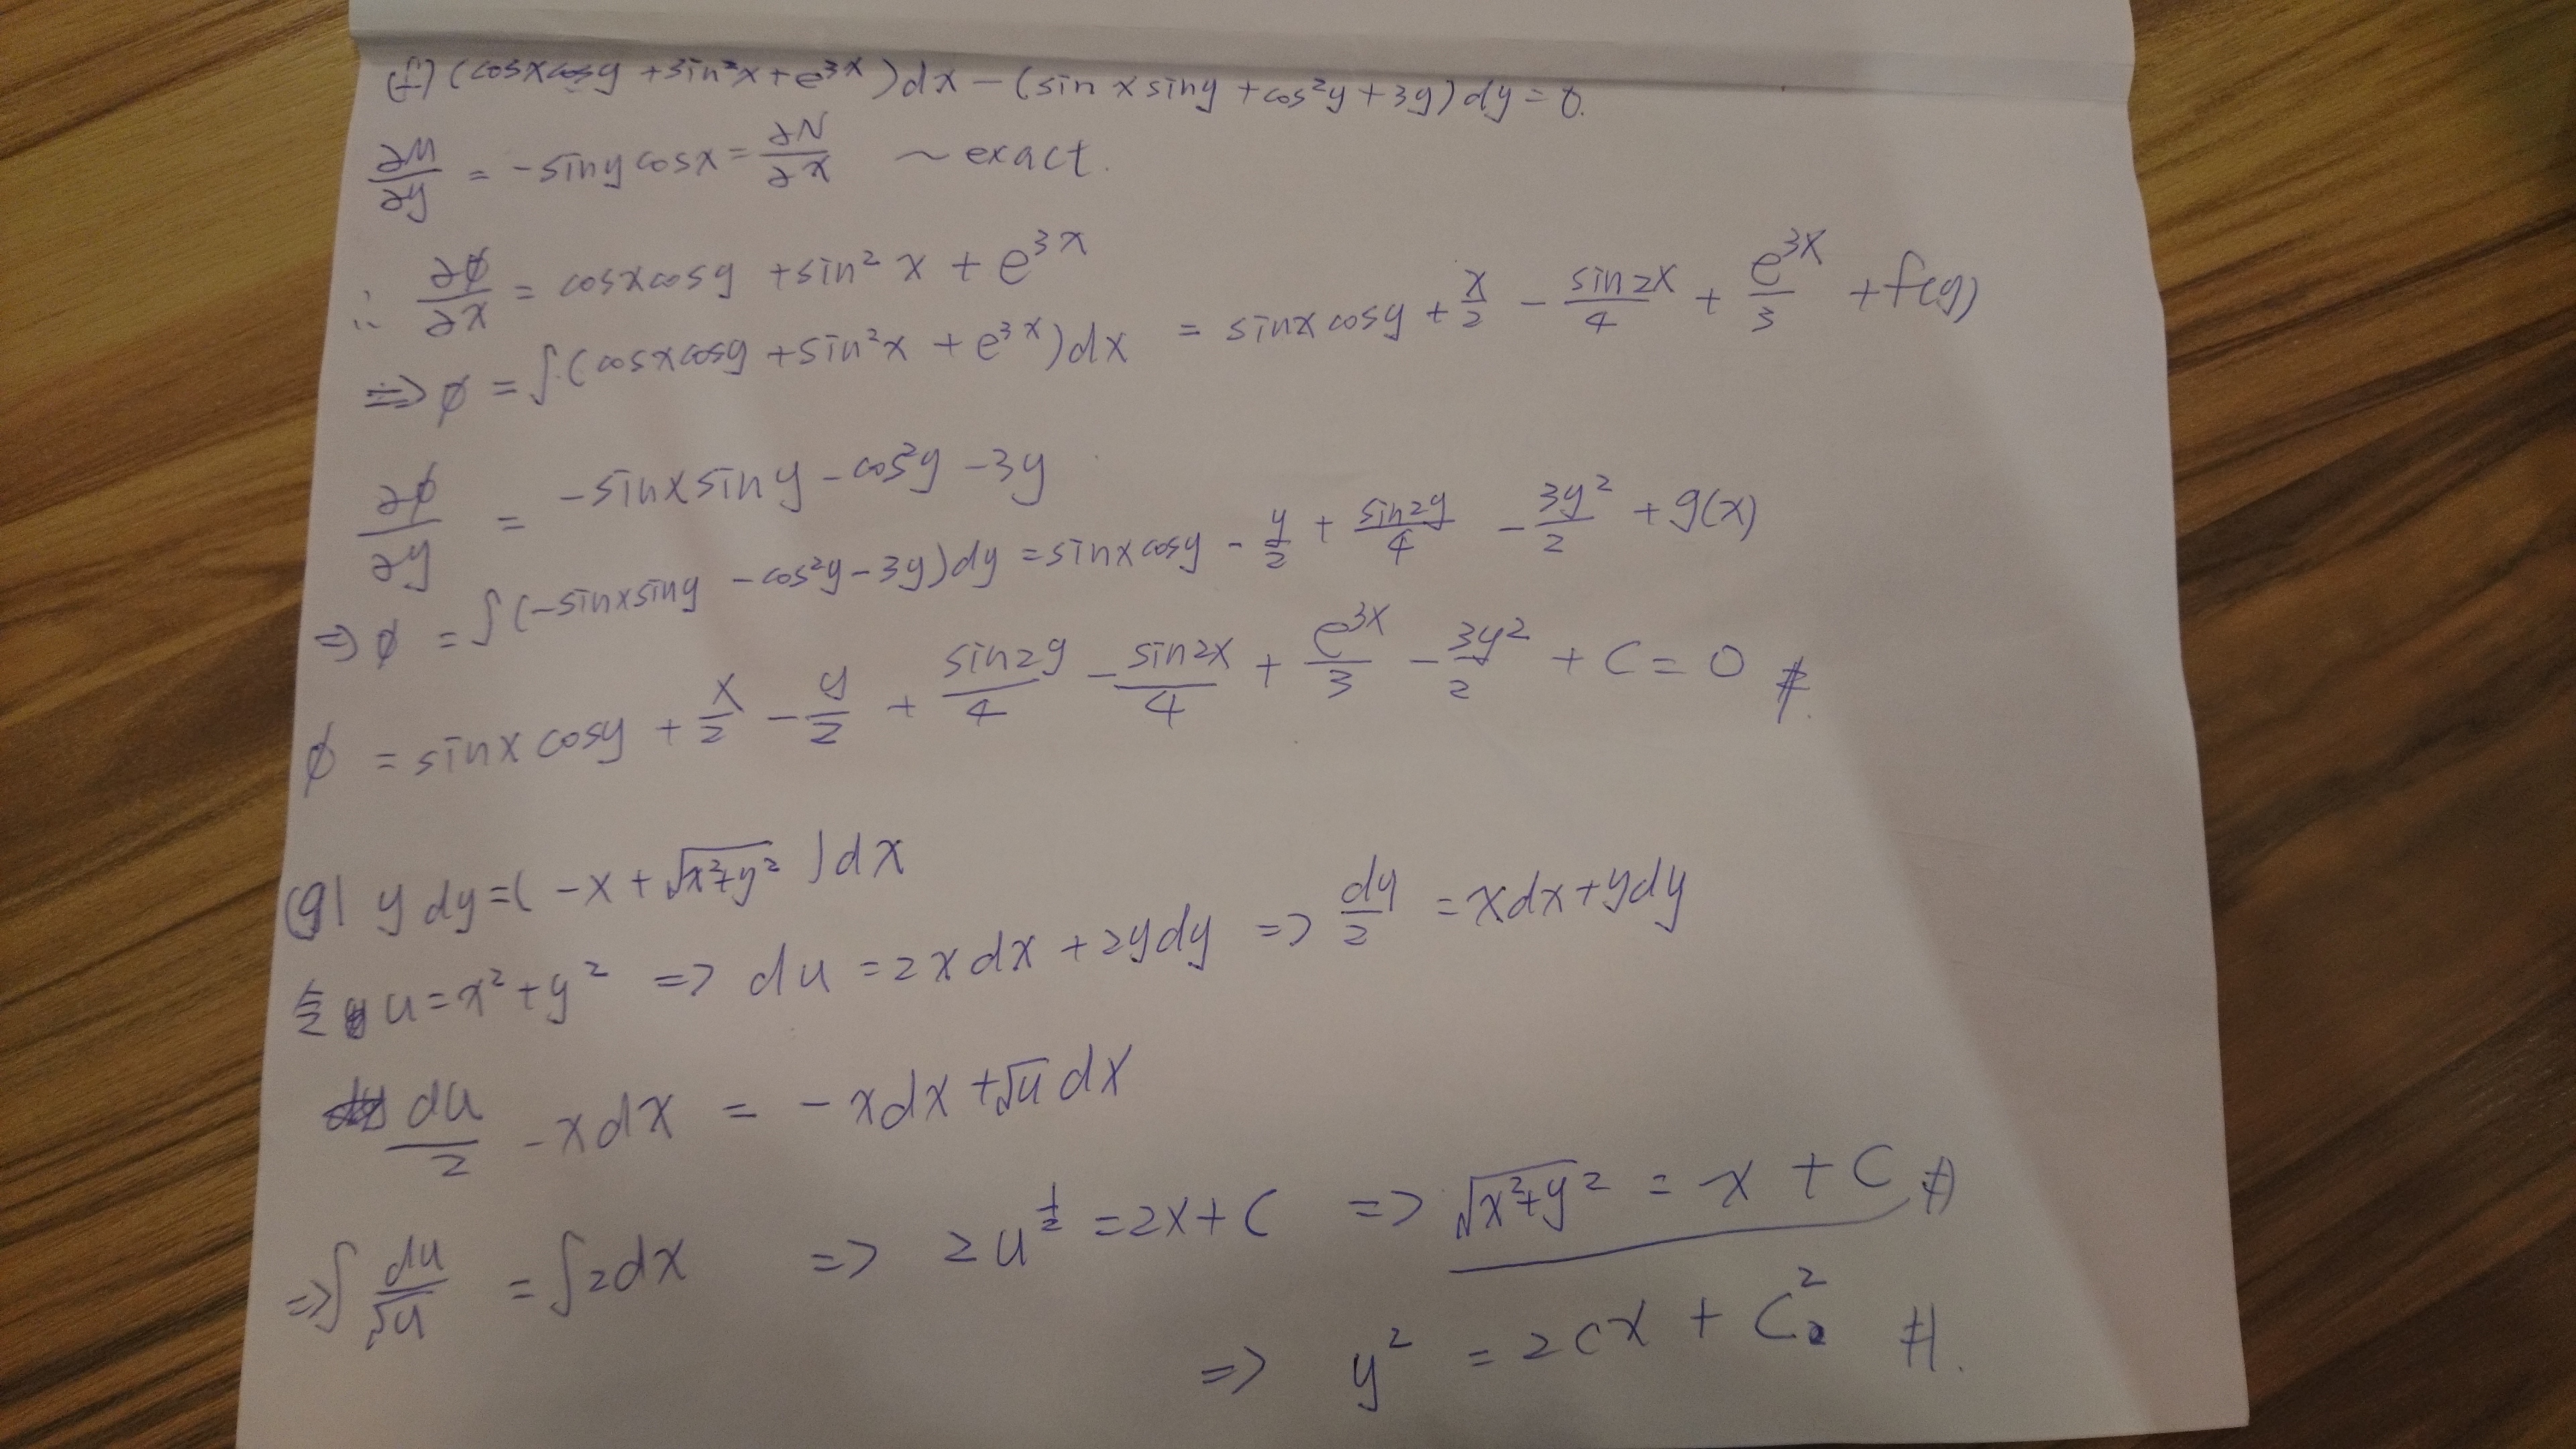 (f) (cosxcosy + sin²x + e^{3x})dx - (sin x siny + cos²y + 3y)dy = 0.
∂M/∂y = -sinycosx = ∂N/∂x ~ exact.
∴ ∂ϕ/∂x = cosxcosy + sin²x + e^{3x}
=> ϕ = ∫(cosxcosy + sin²x + e^{3x})dx = sinxcosy + x/2 - sin2x/4 + e^{3x}/3 + f(y)
∂ϕ/∂y = -sinxsiny - cos²y - 3y
=> ϕ = ∫(-sinxsiny - cos²y - 3y)dy = sinxcosy - y/2 + sin2y/4 - 3y²/2 + g(x)
ϕ = sinxcosy + x/2 - y/2 + sin2y/4 - sin2x/4 + e^{3x}/3 - 3y²/2 + C = 0 #.
(g) y dy = (-x + √(x²+y²))dx
令 u = x² + y² => du = 2xdx + 2ydy => dy/2 = xdx + ydy
du/2 - xdx = -xdx + √u dx
=> ∫ du/√u = ∫2dx => 2u^{1/2} = 2x + C => √(x²+y²) = x + C #
=> y² = 2cx + C₂² #.